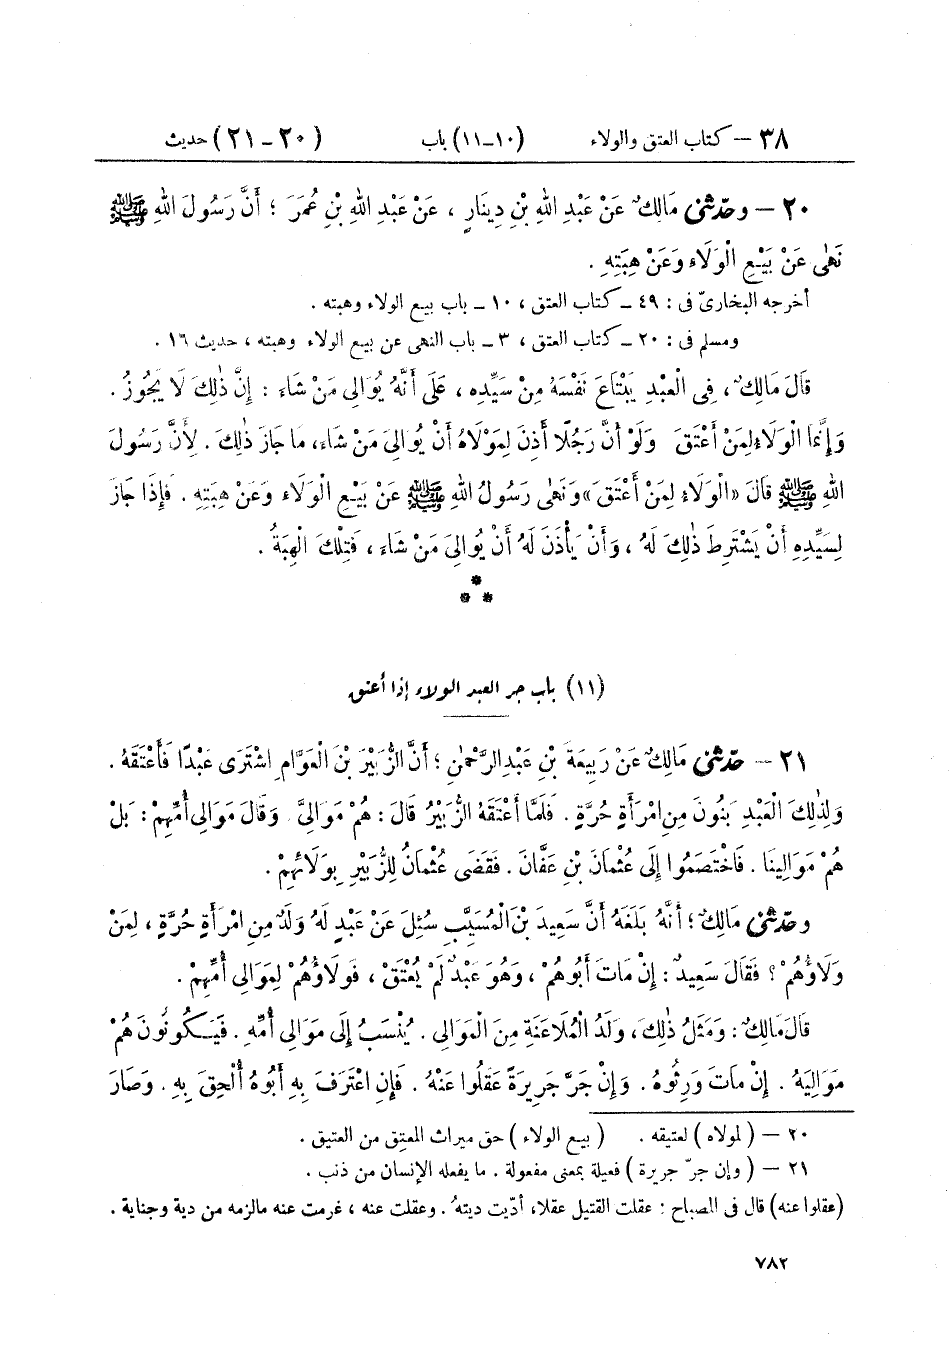 ٣٨ – كتاب العتق والولاء (١٠–١١) باب (٢٠–٢١) حديث
٢٠ – وحدّثنى مَالِكٌ عَنْ عَبْدِ اللهِ بْنِ دِينَارٍ ، عَنْ عَبْدِ اللهِ بْنِ عُمَرَ ؛ أَنَّ رَسُولَ اللهِ ﷺ
نَهَى عَنْ بَيْعِ الْوَلَاءِ وَعَنْ هِبَتِهِ .
أخرجه البخارىّ فى : ٤٩ – كتاب العتق ، ١٠ – باب بيع الولاء وهبته .
ومسلم فى : ٢٠ – كتاب العتق ، ٣ – باب النهى عن بيع الولاء وهبته ، حديث ١٦ .
قَالَ مَالِكٌ ، فِى الْعَبْدِ يَبْتَاعُ نَفْسَهُ مِنْ سَيِّدِهِ ، عَلَى أَنَّهُ يُوَالِى مَنْ شَاءَ : إِنَّ ذٰلِكَ لَا يَجُوزُ .
وَإِنَّمَا الْوَلَاءُ لِمَنْ أَعْتَقَ وَلَوْ أَنَّ رَجُلًا أَذِنَ لِمَوْلَاهُ أَنْ يُوَالِىَ مَنْ شَاءَ ، مَا جَازَ ذٰلِكَ . لِأَنَّ رَسُولَ
اللهِ ﷺ قَالَ «الْوَلَاءُ لِمَنْ أَعْتَقَ» وَنَهَى رَسُولُ اللهِ ﷺ عَنْ بَيْعِ الْوَلَاءِ وَعَنْ هِبَتِهِ . فَإِذَا جَازَ
لِسَيِّدِهِ أَنْ يَشْتَرِطَ ذٰلِكَ لَهُ ، وَأَنْ يَأْذَنَ لَهُ أَنْ يُوَالِىَ مَنْ شَاءَ ، فَتِلْكَ الْهِبَةُ .
*
* *
(١١) باب جر العبد الولاء إذا أعتق
٢١ – حدّثنى مَالِكٌ عَنْ رَبِيعَةَ بْنِ عَبْدِ الرَّحْمٰنِ ؛ أَنَّ الزُّبَيْرَ بْنَ الْعَوَّامِ اشْتَرَى عَبْدًا فَأَعْتَقَهُ .
وَلِذٰلِكَ الْعَبْدِ بَنُونَ مِنِ امْرَأَةٍ حُرَّةٍ . فَلَمَّا أَعْتَقَهُ الزُّبَيْرُ قَالَ : هُمْ مَوَالِىَّ . وَقَالَ مَوَالِى أُمِّهِمْ : بَلْ
هُمْ مَوَالِينَا . فَاخْتَصَمُوا إِلَى عُثْمَانَ بْنِ عَفَّانَ . فَقَضَى عُثْمَانُ لِلزُّبَيْرِ بِوَلَائِهِمْ .
وحدّثنى مَالِكٌ ؛ أَنَّهُ بَلَغَهُ أَنَّ سَعِيدَ بْنَ الْمُسَيَّبِ سُئِلَ عَنْ عَبْدٍ لَهُ وَلَدٌ مِنِ امْرَأَةٍ حُرَّةٍ ، لِمَنْ
وَلَاؤُهُمْ ؟ فَقَالَ سَعِيدٌ : إِنْ مَاتَ أَبُوهُمْ ، وَهُوَ عَبْدٌ لَمْ يُعْتَقْ ، فَوَلَاؤُهُمْ لِمَوَالِى أُمِّهِمْ .
قَالَ مَالِكٌ : وَمَثَلُ ذٰلِكَ ، وَلَدُ الْمُلَاعَنَةِ مِنَ الْمَوَالِى . يُنْسَبُ إِلَى مَوَالِى أُمِّهِ . فَيَكُونُونَ هُمْ
مَوَالِيَهُ . إِنْ مَاتَ وَرِثُوهُ . وَإِنْ جَرَّ جَرِيرَةً عَقَلُوا عَنْهُ . فَإِنِ اعْتَرَفَ بِهِ أَبُوهُ أُلْحِقَ بِهِ . وَصَارَ
٢٠ – ( لمولاه ) لعتيقه . ( بيع الولاء ) حق ميراث المعتِق من العتيق .
٢١ – ( وإن جرّ جريرة ) فعيلة بمعنى مفعولة . ما يفعله الإنسان من ذنب .
(عقلوا عنه) قال فى المصباح : عقلت القتيل عقلا، أدّيت ديتهُ . وعقلت عنه ، غرمت عنه مالزمه من دية وجناية .
٧٨٢